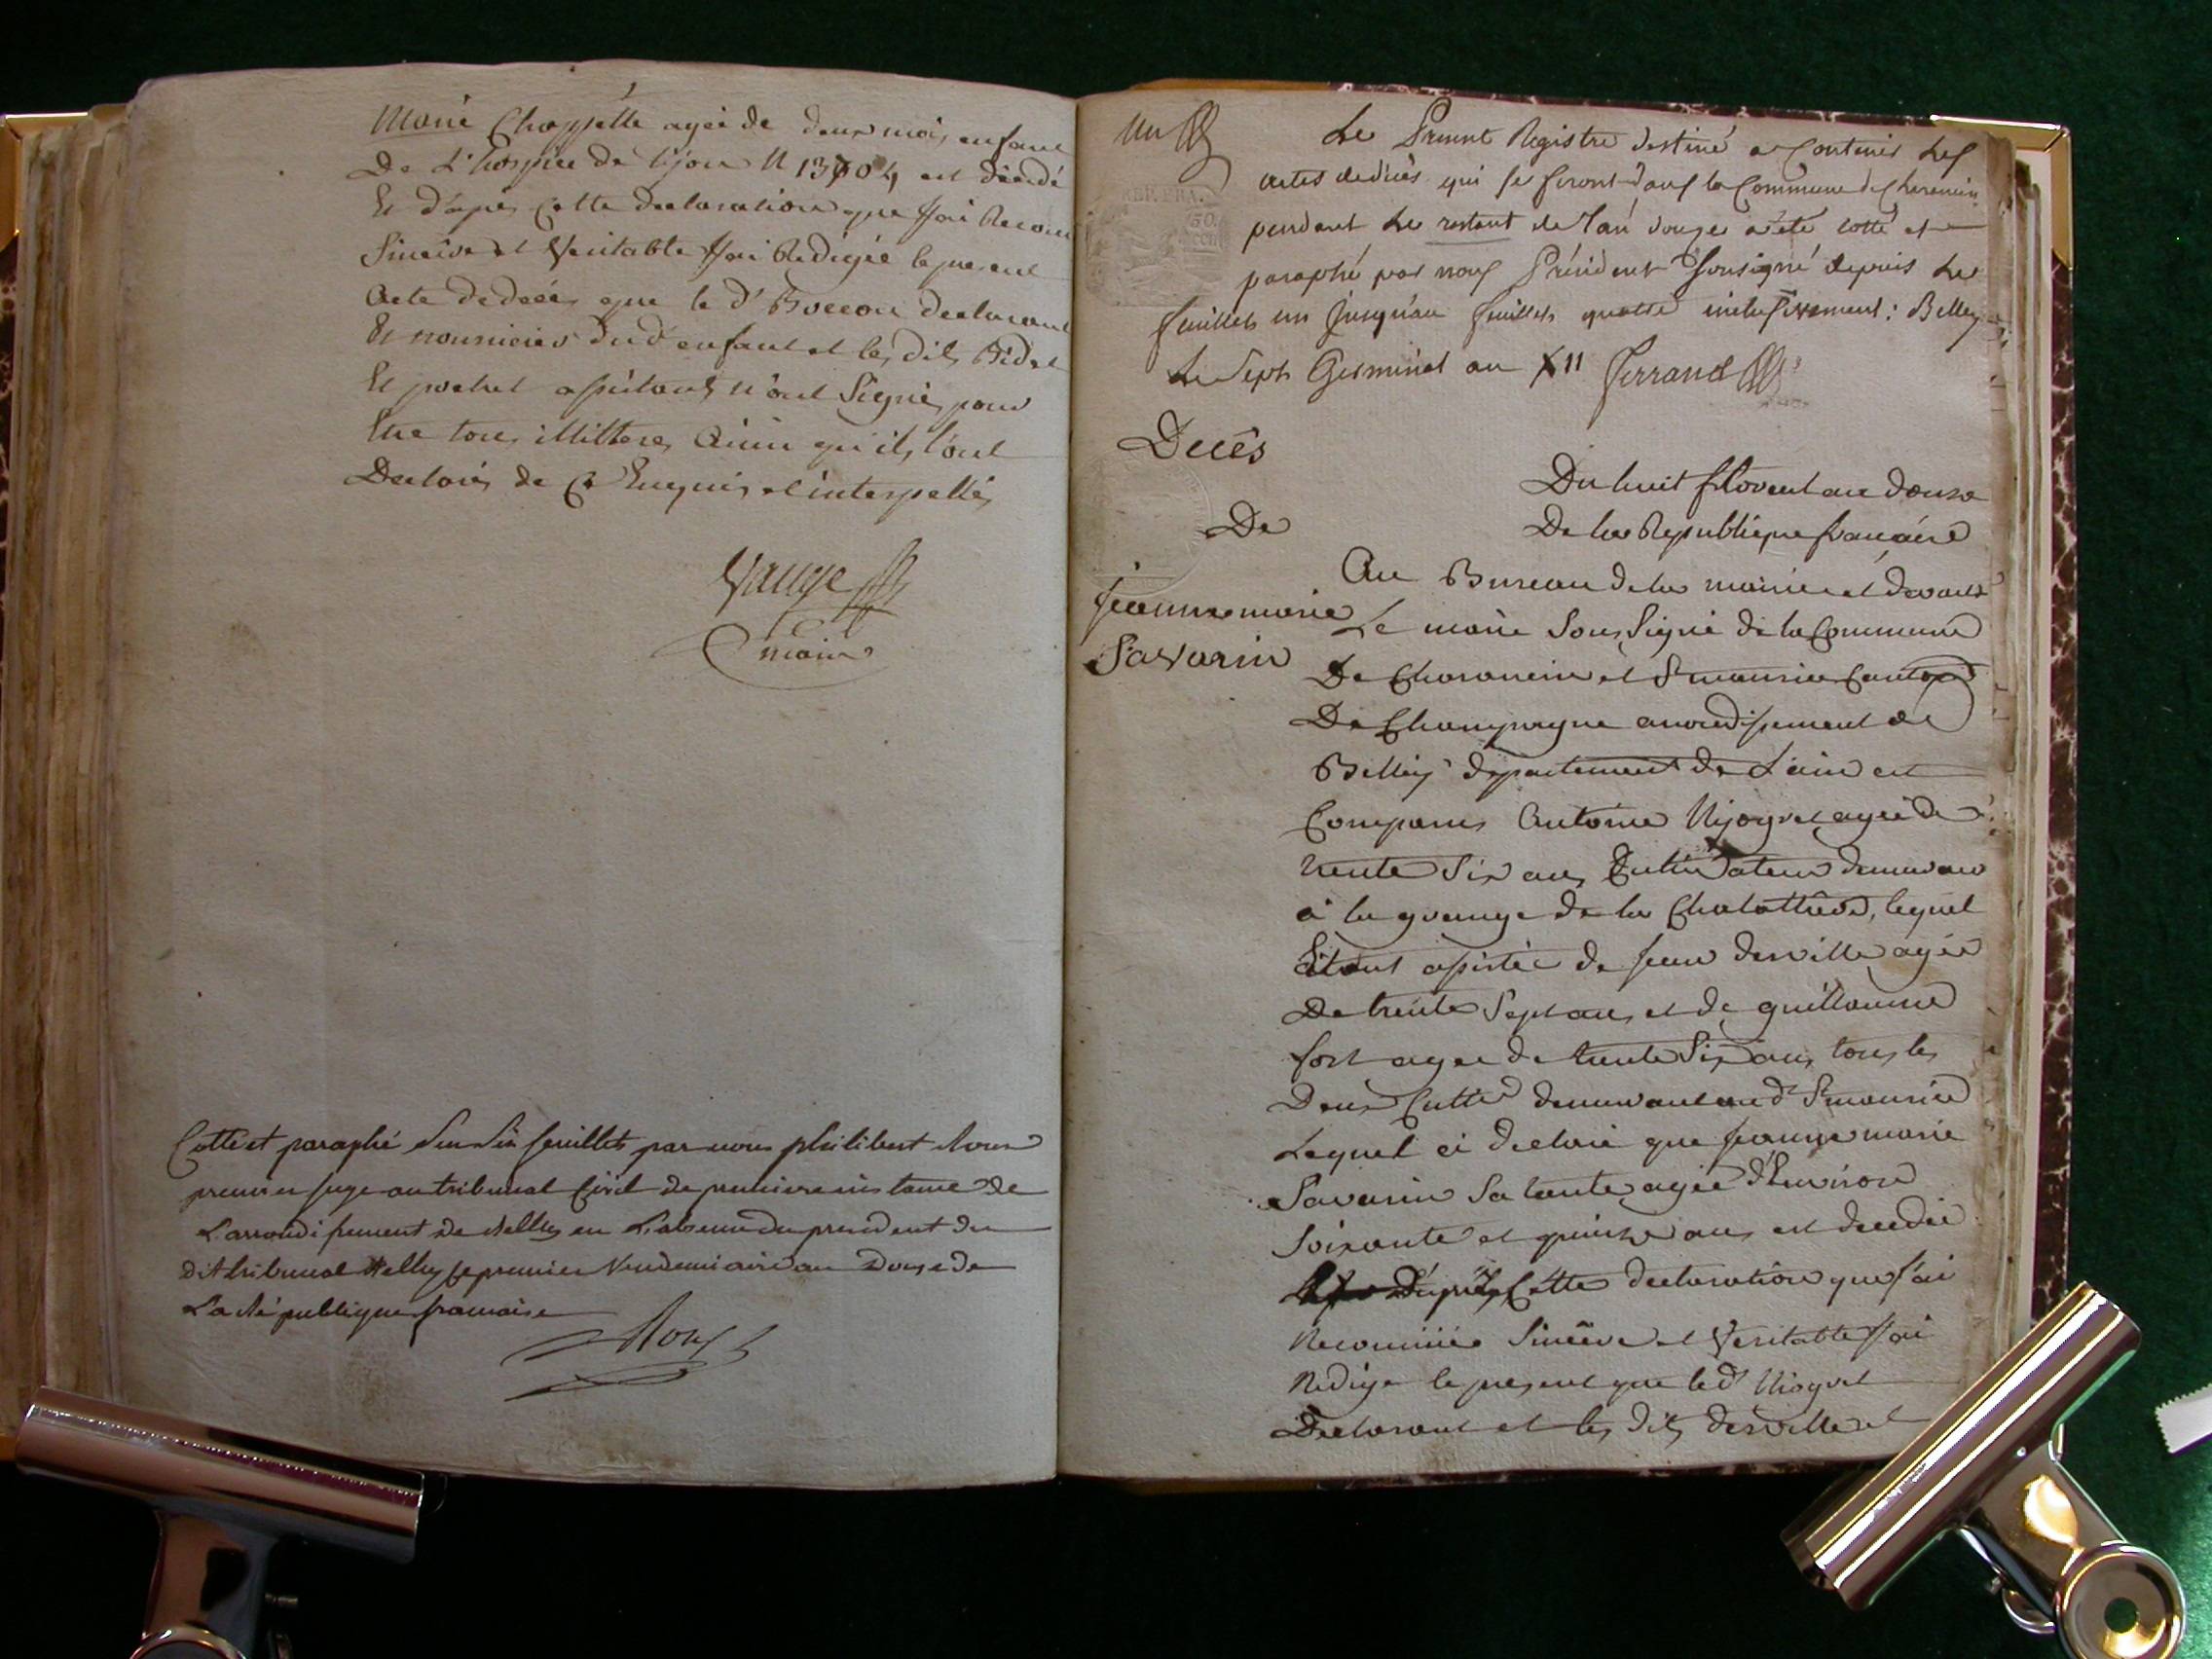 Marie Chappelle ageé de deux mois, enfant
De L'hospice de lyon N 13704 est décédé
Et d'apres Cette declaration que J'ai Reconu
Sincère et Veritable J'ai Redigée le present
Acte de decés que le d' Boccon declarant
Et nourricier dud' enfant et les dits Bidet
Et pochet assistants n'ont Signé, pour
Etre tous illitteres Ainsi qu'ils l'ont
Declaré, de Ce Enquis et interpellés
Vauge
maire
Cotté et paraphé Sur Six feuillets par nous philibert Roux
premier juge au tribunal Civil de premiere instance de
L'arrondissement de Belley en L'absence du president du
dit tribunal Belley le premier Vendemiaire an Douze de
La République francaise
Roux
Un
Le Présent Registre destiné a Contenir Les
actes de décès qui se feront dans la Commune de Charancin
pendant le restant de l'an douze a été cotté et
paraphé par nous Président Soussigné depuis le
feuillet un jusqu'au feuillet quatre inclusivement : Belley
Le Sept Germinal an XII Ferrand
Decès
De
jeanne marie
Savarin
Du huit floreal an douze
De la Republique francaise
Au Bureau de la mairie et devant
Le maire Sous Signé de la Commune
De Charancin et St maurice Canton
De Champagne arrondissement de
Belley departement de L'ain est
Comparu Antoine Niogret ageé de
trente Six ans Cultivateur demeurant
à la grange de la , lequel
Etant assisté de jean derville ageé
De trente Sept ans, et de guillaume
fort ageé de trente Six ans, tous les
Deux Cultrs demeurant aud' St maurice
Lequel a declaré que jeanne marie
Savarin Sa tante ageé d'Environ
Soixante et quinze ans est decedée
D'après Cette declaration que J'ai
Reconnüe Sincère et Veritable J'ai
Redigé le present que le d' Niogret
Declarant et les dits derville et